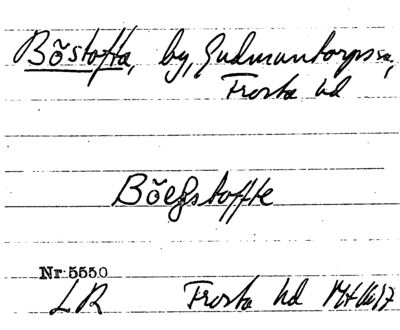 Böstofta, by, Gudmuntorps sn,
Frosta hd
Böelsstoffte
Nr 5550
LR Frosta hd